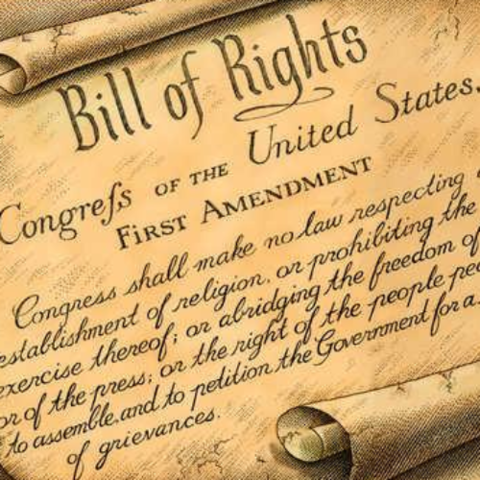 Bill of Rights
Congreſs OF THE United States,
FIRST AMENDMENT
Congress shall make no law respecting
establishment of religion, or prohibiting the
exercise thereof; or abridging the freedom of
or of the press; or the right of the people pea
to assemble, and to petition the Government for a
of grievances.